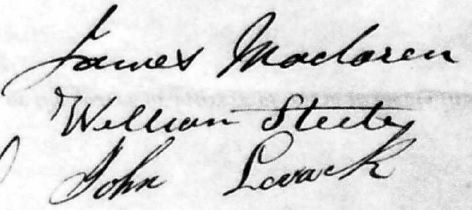 James Maclaren
William Steele
John Levack